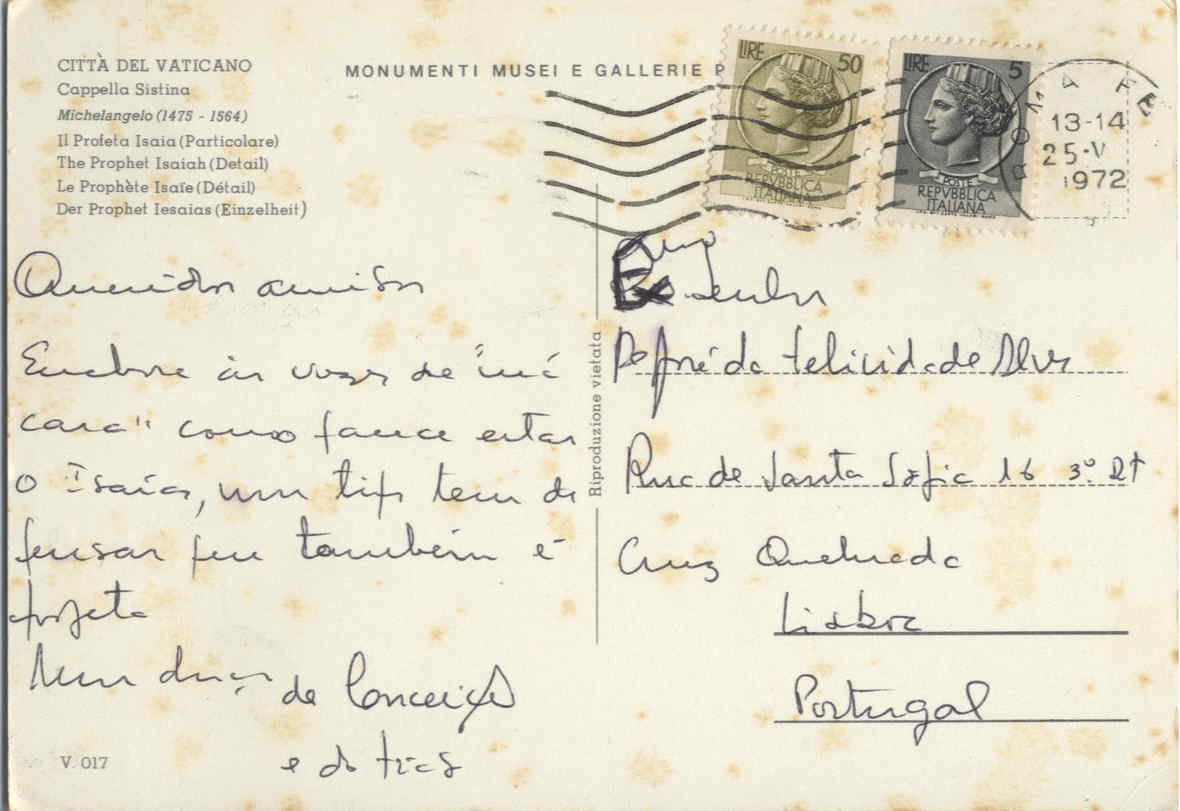 CITTÀ DEL VATICANO
Cappella Sistina
Michelangelo (1475 - 1564)
Il Profeta Isaia (Particolare)
The Prophet Isaiah (Detail)
Le Prophète Isaïe (Détail)
Der Prophet Iesaias (Einzelheit)
MONUMENTI MUSEI E GALLERIE P
LIRE 50
POSTE
REPVBBLICA
ITALIANA
LIRE 5
POSTE
REPVBBLICA
ITALIANA
ROMA FE
13-14
25-V
1972
Queridos amigos
Embora às vezes de "má
cara" como parece estar
o Isaías, um tipo tem de
pensar que também é
profeta
Um
da Conceição
e do
V. 017
Riproduzione vietata
Exo. Senhor
Pe José da Felicidade Alves
Rua de Santa Sofia 16 3º Dt
Cruz Quebrada
Lisboa
Portugal